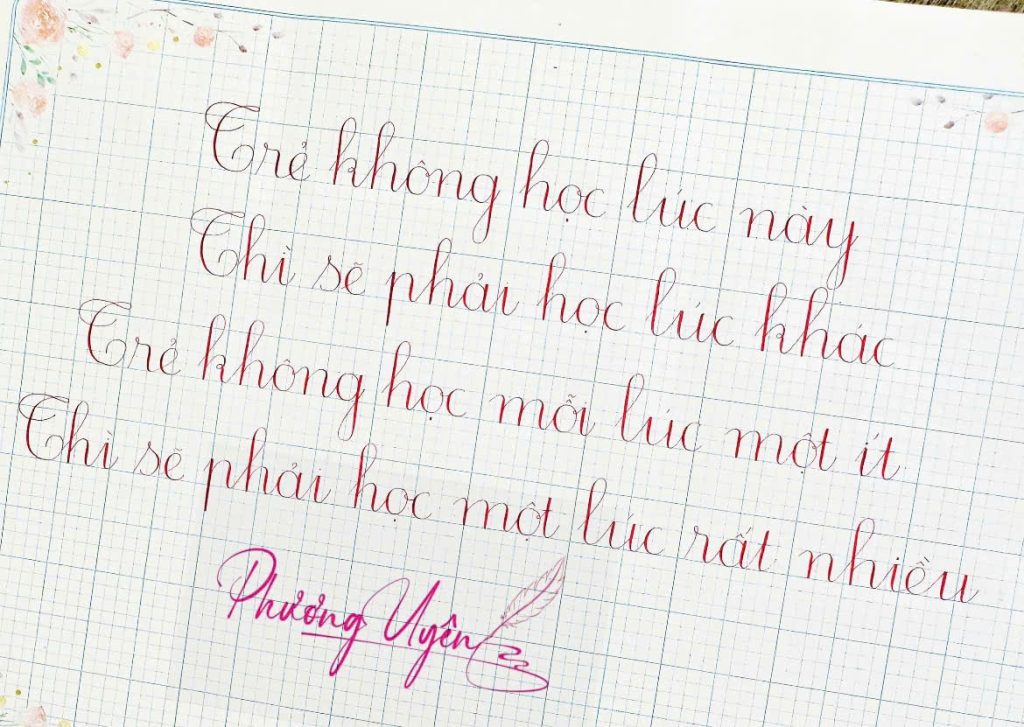 Trẻ không học lúc này
Thì sẽ phải học lúc khác
Trẻ không học mỗi lúc một ít
Thì sẽ phải học một lúc rất nhiều
Phương Uyên